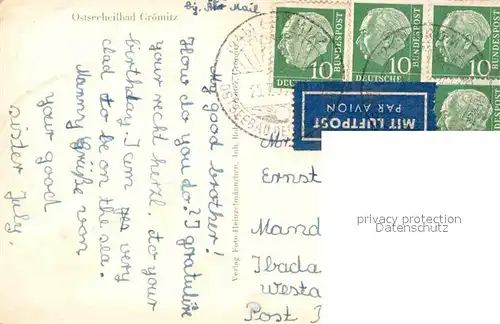 Ostseeheilbad Grömitz
By Air Mail
My good brother!
How do you do? I gratuliere
your recht herzl. to your
birthday. I am yes very
clad to be on the sea.
Manny Grüße von
your good
sister July.
Verlag Foto-Heinzelmännchen, Inh.
10
DEUTSCHE
BUNDESPOST
10
DEUTSCHE
BUNDESPOST
10
BUNDESPOST
MIT LUFTPOST
PAR AVION
Ernst
Mand
Ibada
Westa
Post
privacy protection
Datenschutz